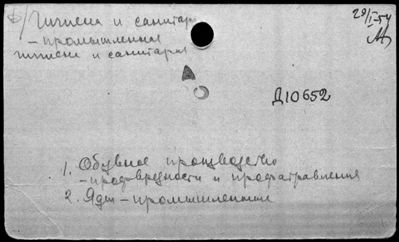 б/ Гигиена и санитар
29/I-54
- промышленная
гигиена и санитария
Д10652
1. Обувное производство
- профвредности и профотравления
2. Яды - промышленные